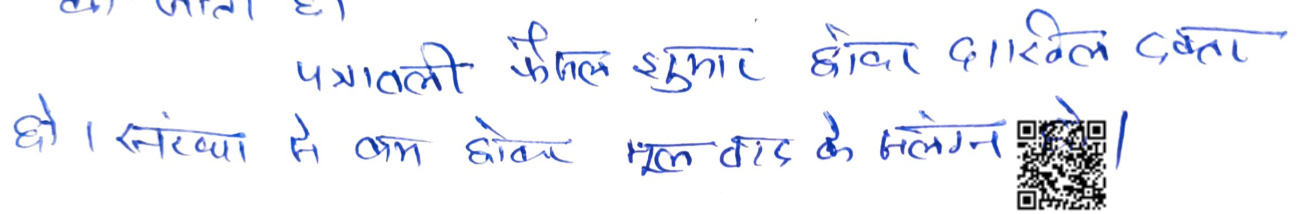 जाता है।
पत्रावली फैसल शुमार होकर दाखिल दफ्तर
हो। संख्या से कम होकर मूल वाद के संलग्न रहे।